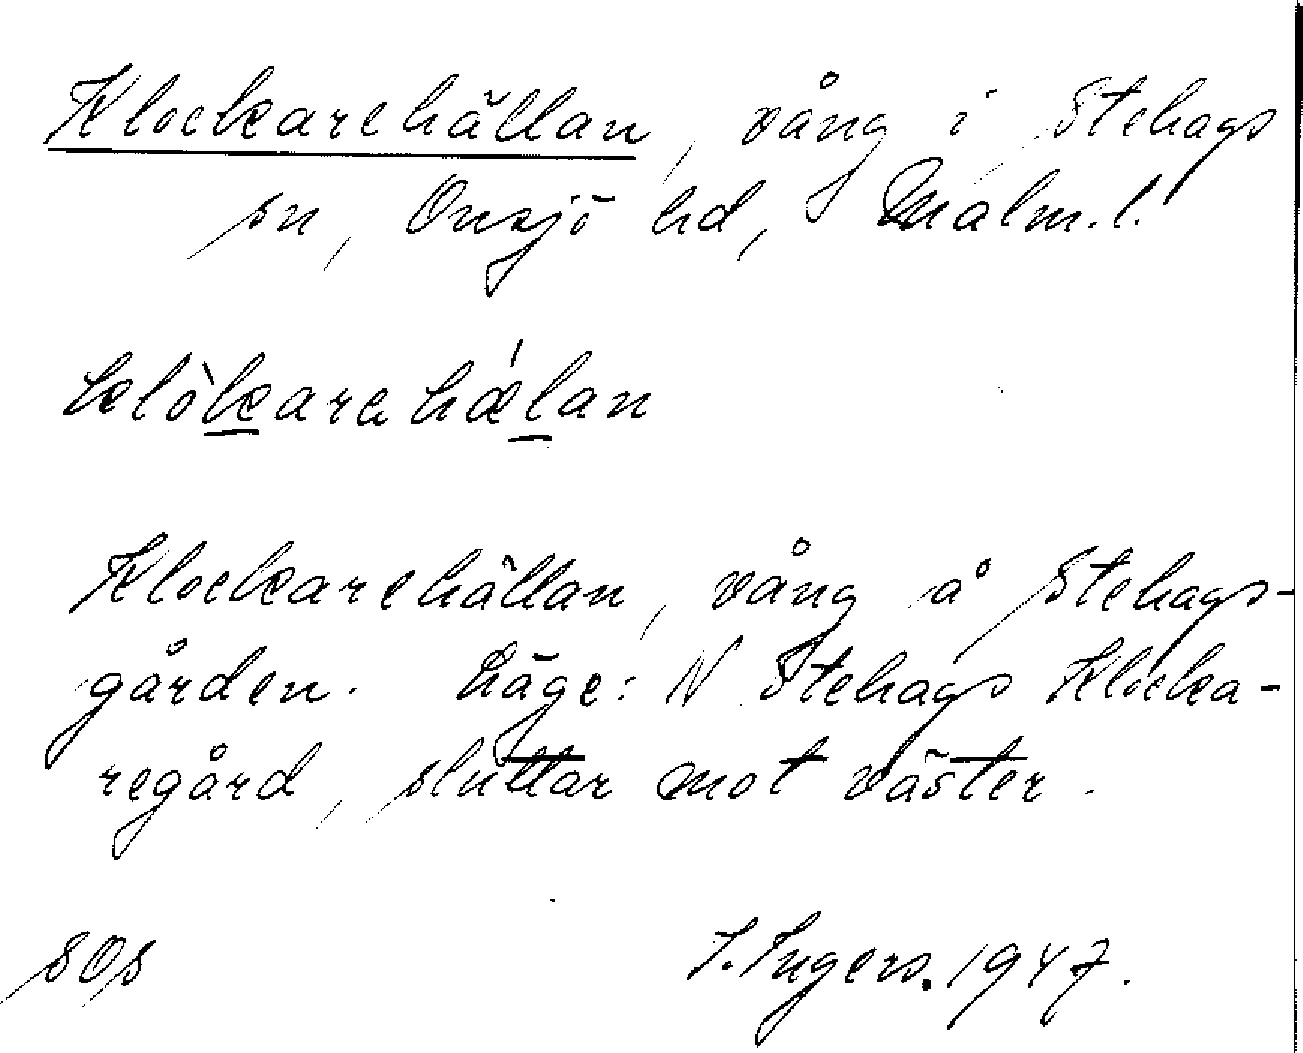 Klockarehällan, vång i Stehags
sn, Onsjö hd, Malm.l.
klòkarahǽlan
Klockarehällan, vång å Stehags-
gården. Läge: N Stehags Klocka-
regård, sluttar mot väster.
I. Ingers. 1947.